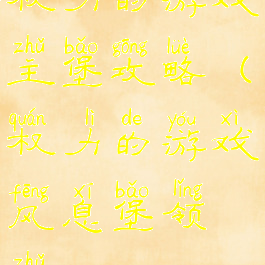 权力的游戏
zhǔ bǎo gōng lüè
主堡攻略（
quán lì de yóu xì
权力的游戏
fēng xī bǎo lǐng
风息堡领
zhǔ